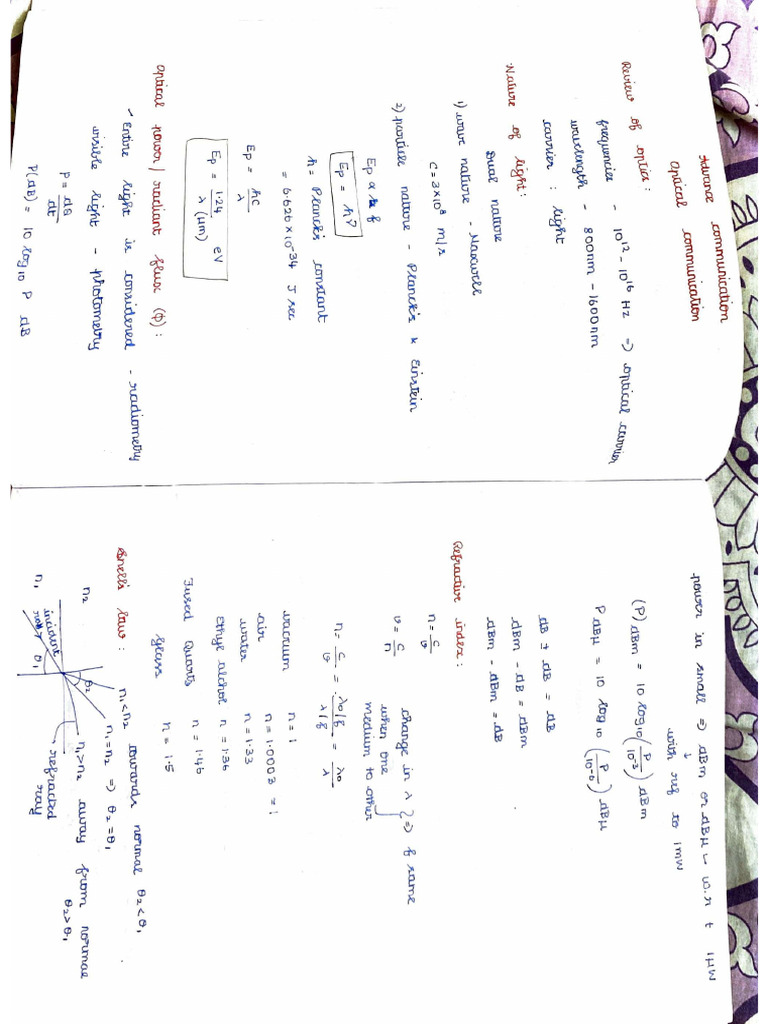 Advance communication
Optical communication
Review of optics:
frequencies - 10¹² - 10¹⁶ Hz ⇒ optical carrier
wavelength - 800nm - 1600nm
carrier : light
Nature of light:
Dual nature
1) wave nature - Maxwell
C = 3×10⁸ m/s
2) particle nature - Planck's & Einstein
Ep ∝ f
Ep = hν
h = Planck's constant
= 6.626×10⁻³⁴ J sec
Ep = hc/λ
Ep = 1.24/λ(μm) eV
Optical power/ radiant flux (Φ):
- Entire light is considered - radiometry
visible light - photometry
P = dQ/dt
P(dB) = 10 log₁₀ P dB
power in small ⇒ dBm or dBμ - w.r t 1μW
↓
with ref to 1mW
(P) dBm = 10 log₁₀ (P/10⁻³) dBm
P dBμ = 10 log₁₀ (P/10⁻⁶) dBμ
dB ± dB = dB
dBm - dB = dBm
dBm - dBm = dB
Refractive index:
n = c/v
v = c/n
change in λ } ⇒ f same
when one
medium to other
n = c/v = λ₀f/λf = λ₀/λ
vacuum n = 1
air n = 1.0003 = 1
water n = 1.33
Ethyl alchol n = 1.36
Fused Quarts n = 1.46
glass n = 1.5
Snell's law:
n₁<n₂ towards normal θ₂<θ₁
n₁=n₂ ⇒ θ₂=θ₁
n₁>n₂ away from normal
θ₂>θ₁
n₂
θ₂
n₁
incident
ray
θ₁
refracted
ray